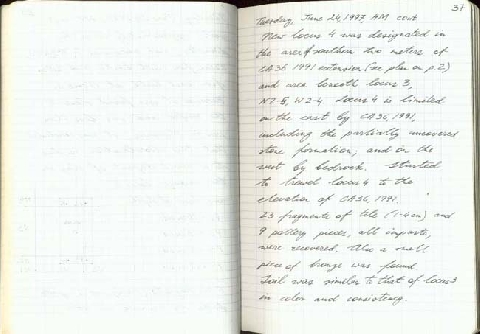 31
Tuesday, June 24, 1997 AM cont
New locus 4 was designated in
the area northern two meters of
CA36 1991 extension (see plan on p.2)
and area beneath locus 3,
N7-5, W2-4. Locus 4 is limited
on the east by CA36, 1991,
including the partially uncovered
stone formation, and on the
west by bedrock. Started
to trowel locus 4 to the
elevation of CA36, 1991.
23 fragments of tile (1-4cm) and
9 pottery pieces, all
were recovered. Also a small
piece of bronze was found.
Soil was similar to that of locus 3
in color and consistency.